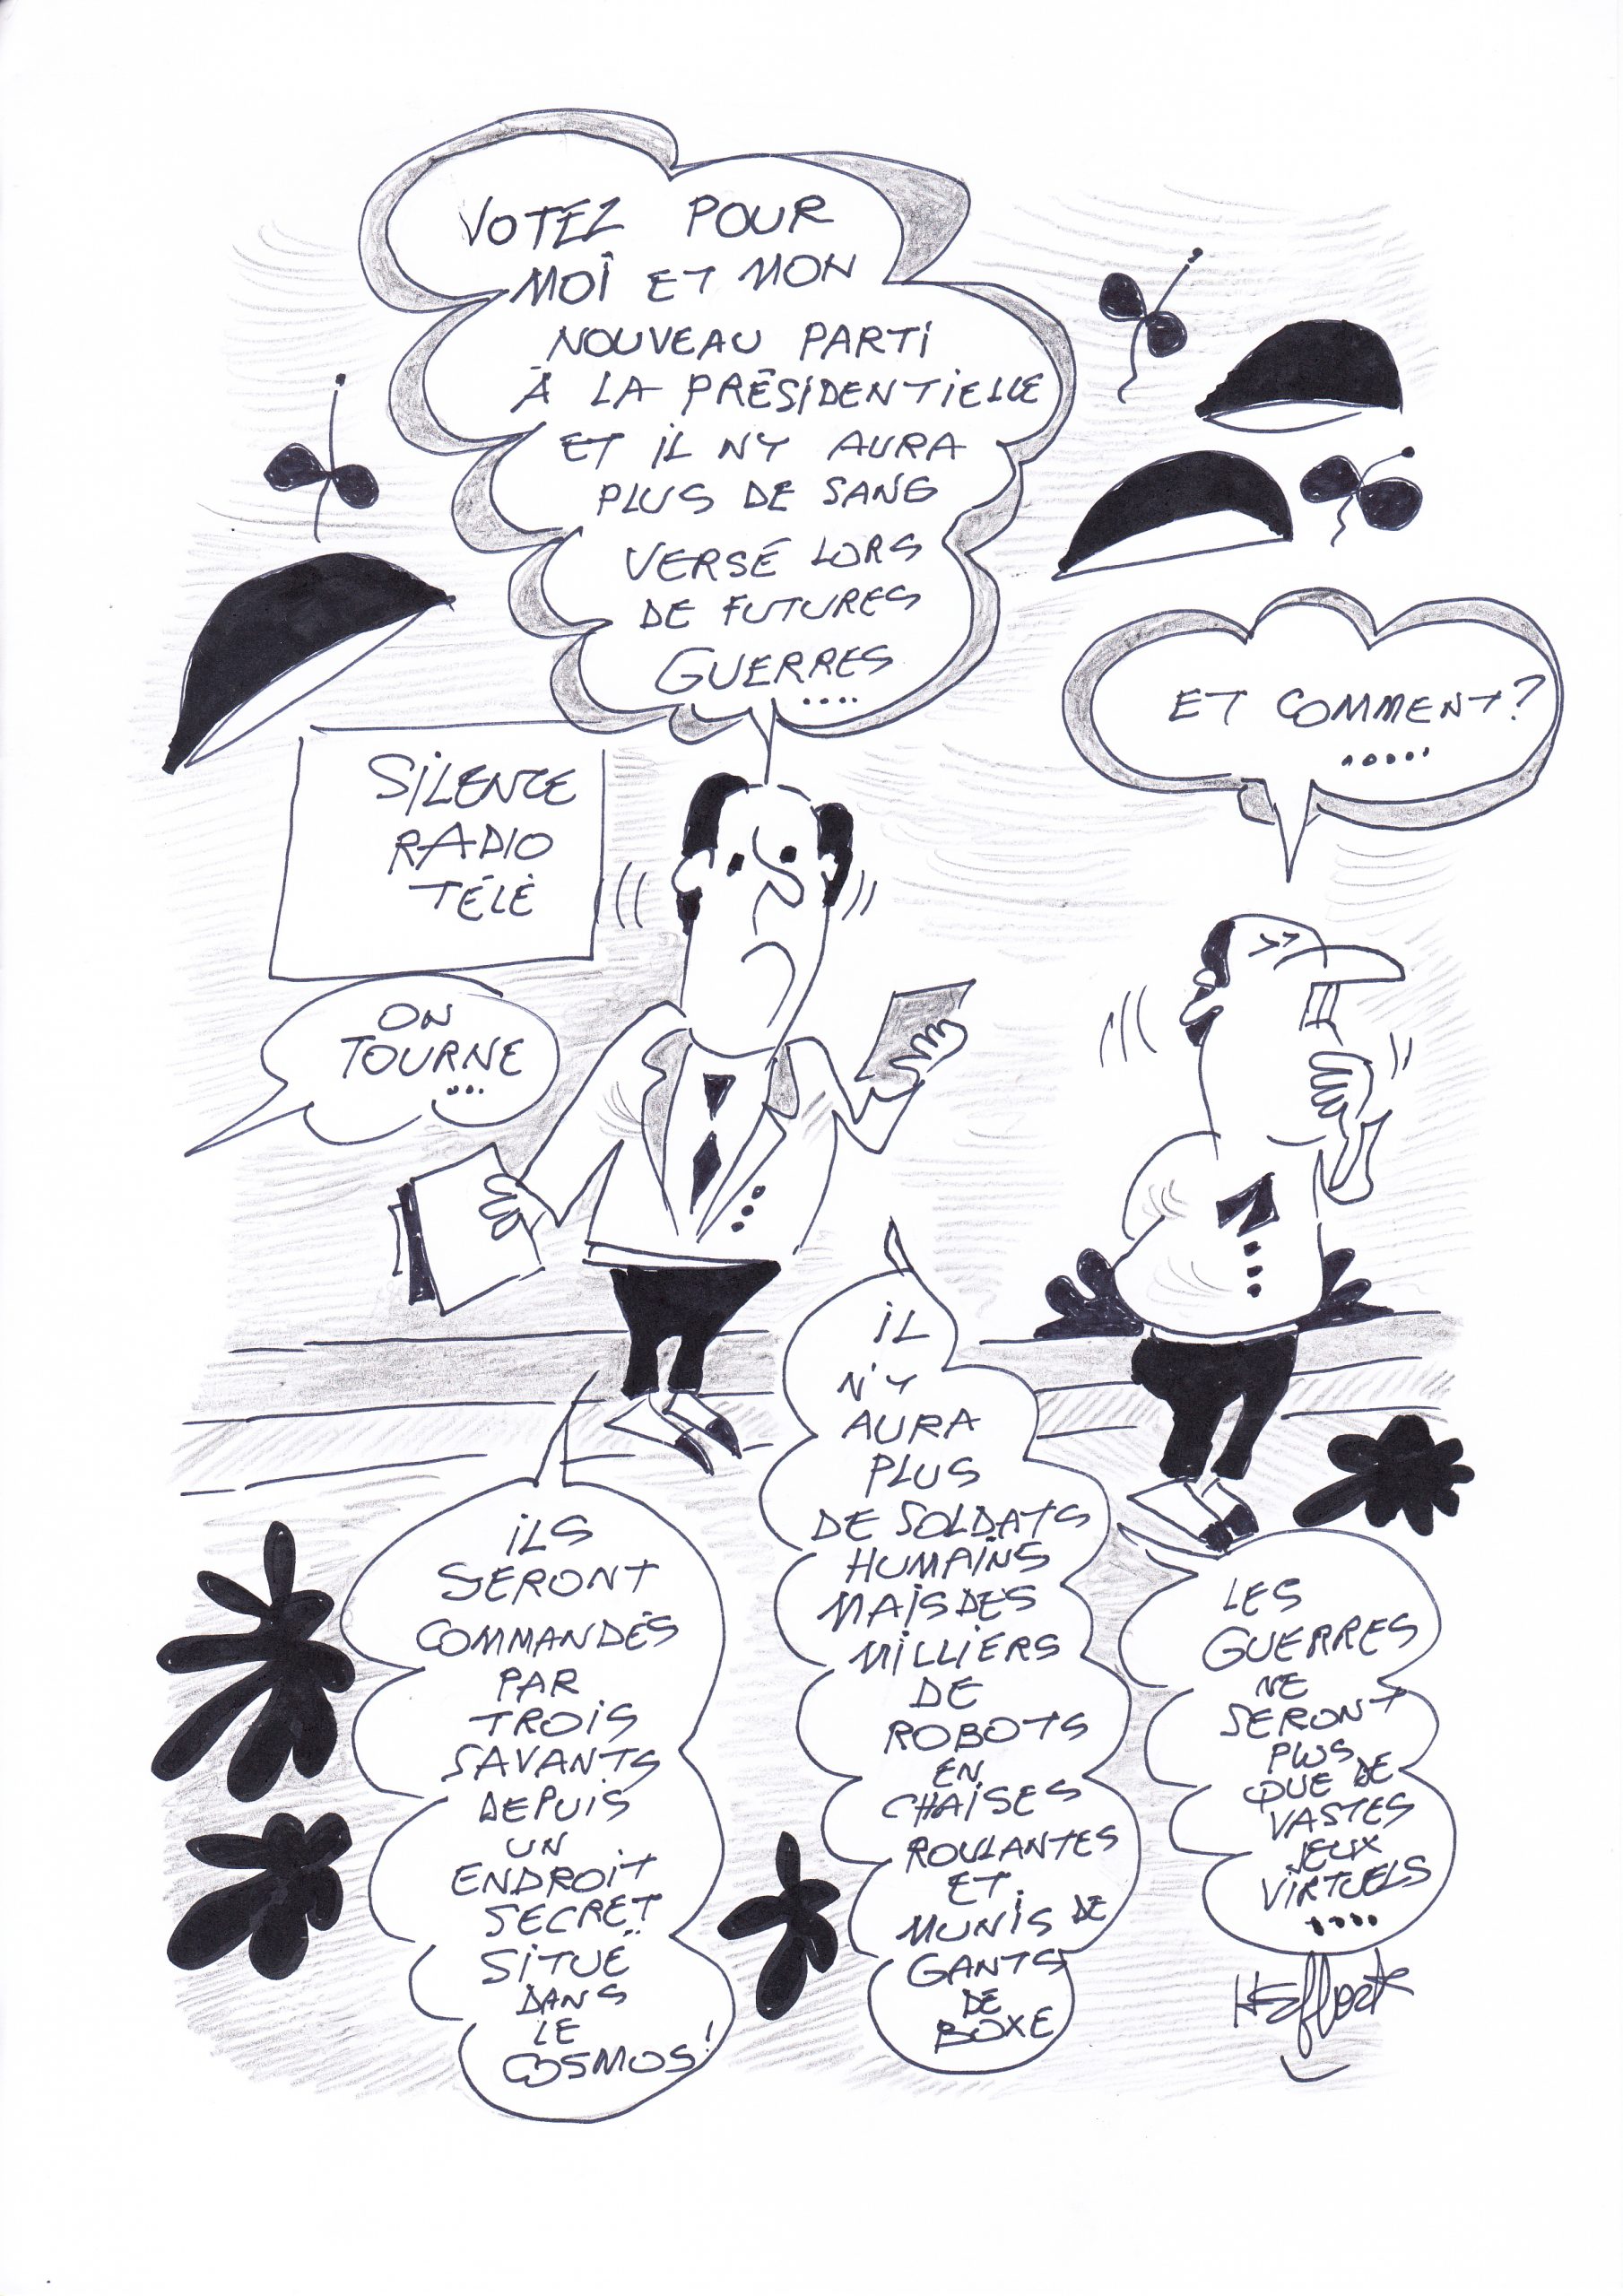 VOTEZ POUR
MOÎ ET MON
NOUVEAU PARTI
À LA PRÉSIDENTIELLE
ET IL NY AURA
PLUS DE SANG
VERSÉ LORS
DE FUTURES
GUERRES
....
ET COMMENT?
.....
SILENCE
RADIO
TÉLÉ
ON
TOURNE
...
ILS
SERONT
COMMANDÉS
PAR
TROIS
SAVANTS
DEPUIS
UN
ENDROIT
SECRET
SITUÉ
DANS
LE
COSMOS!
IL
N'Y
AURA
PLUS
DE SOLDATS
HUMAINS
MAIS DES
MILLIERS
DE
ROBOTS
EN
CHAISES
ROULANTES
ET
MUNIS DE
GANTS
DE
BOXE
LES
GUERRES
NE
SERONT
PLUS
QUE DE
VASTES
JEUX
VIRTUELS
....